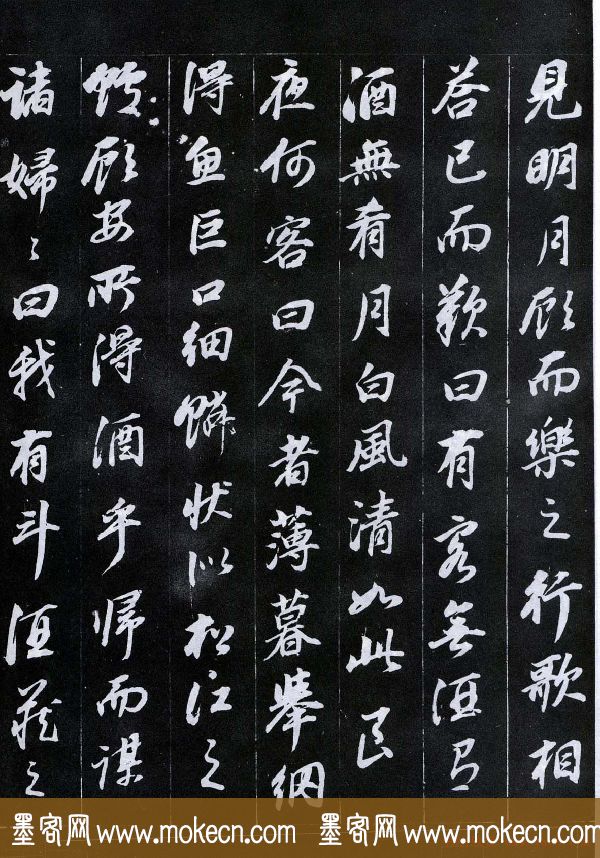 見明月顧而樂之行歌相
荅已而歎曰有客無酒有
酒無肴月白風清如此良
夜何客曰今者薄暮舉網
得魚巨口細鱗狀似松江之
鱸顧安所得酒乎歸而謀
諸婦〻曰我有斗酒藏之
墨客网 www.mokecn.com 墨客网 www.mokecn.com